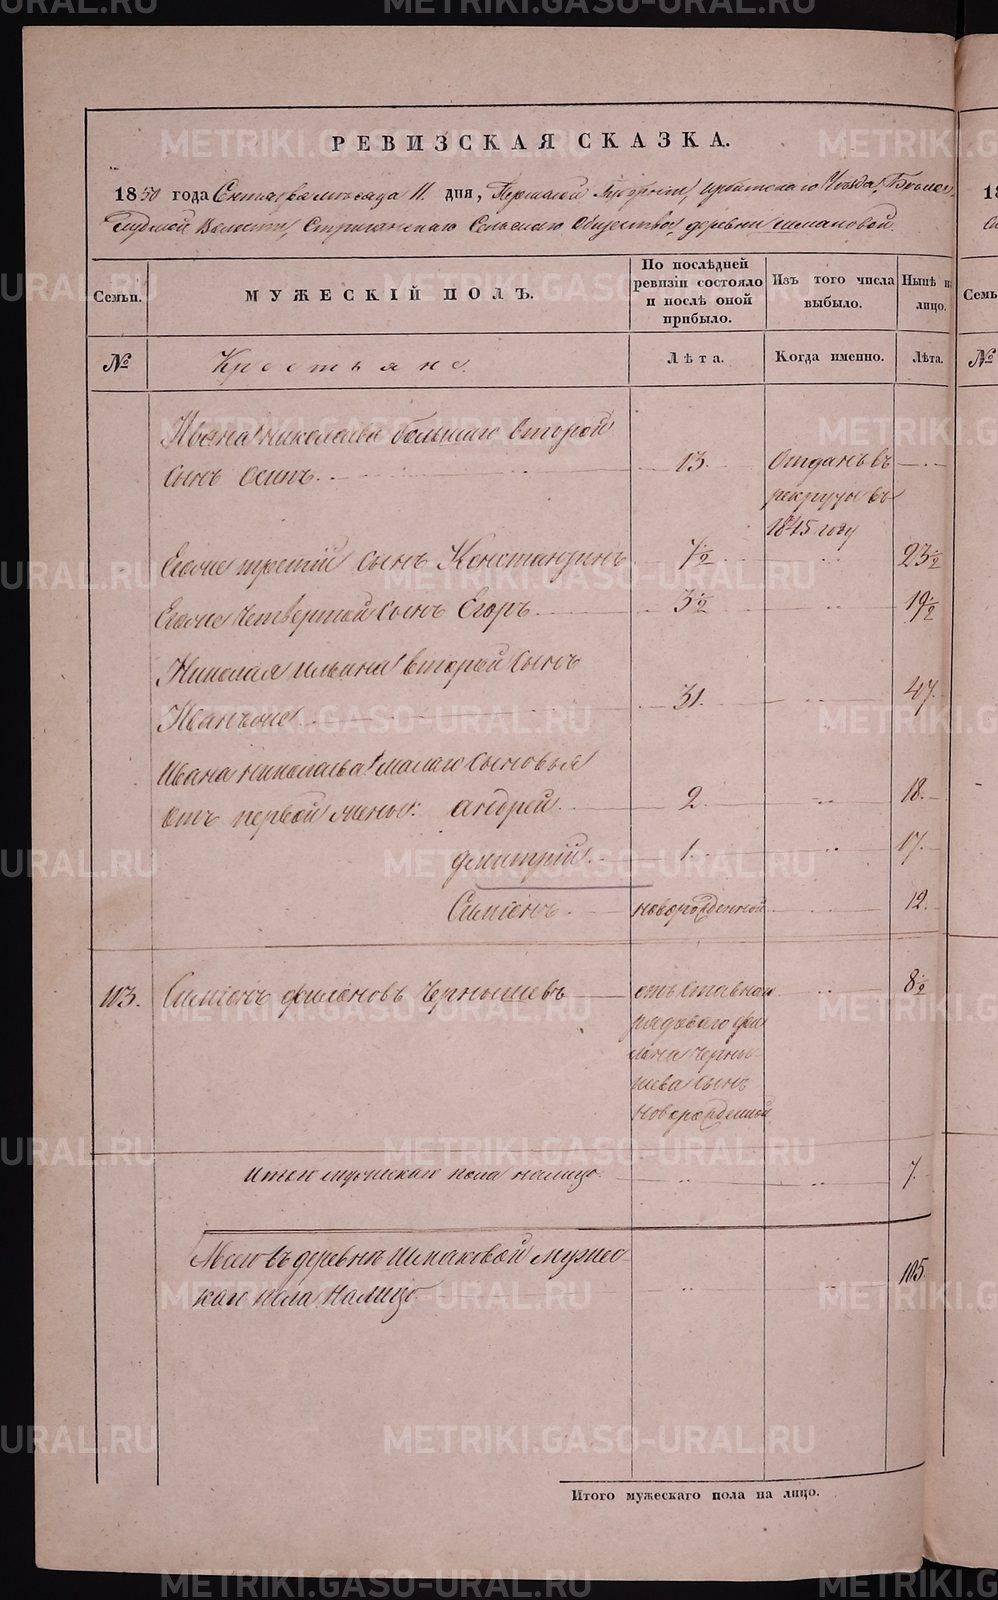 РЕВИЗСКАЯ СКАЗКА.
1850 года Сентября месяца 11 дня, Пермской Губернии, Ирбитскаго Уѣзда, Бѣлос-
лудской Волости, Стриганскаго Сельскаго Общества, деревни Шмаковой.
Семьи.
МУЖЕСКІЙ ПОЛЪ.
По послѣдней
ревизіи состояло
и послѣ оной
прибыло.
Изъ того числа
выбыло.
Нынѣ н
лицо.
№
Крестьяне.
Лѣта.
Когда именно.
Лѣта.
Ивана Николаева большаго второй
сынъ Осипъ. 13. Отданъ въ
рекруты въ
1845 году
Егоже третій сынъ Константинъ 7½ 23½
Егоже четвертой сынъ Егоръ 3½ 19½
Николая Ильина второй сынъ
Иванъ 31. 47.
Ивана Николаева малаго сыновья
отъ первой жены: Андрей. 2. 18.
Дмитрій. 1. 17.
Симіонъ. новорожденной 12.
103. Симіонъ Филоновъ Чернышевъ отъ
рядоваго Фи
лона Черны-
шева сынъ
новорожденной 8½
Итого мужескаго пола налицо 7.
Всего въ деревнѣ Шмаковой мужес-
каго пола налицо 105.
Итого мужескаго пола на лицо.
18
Семь
№
METRIKI.GASO-URAL.RU